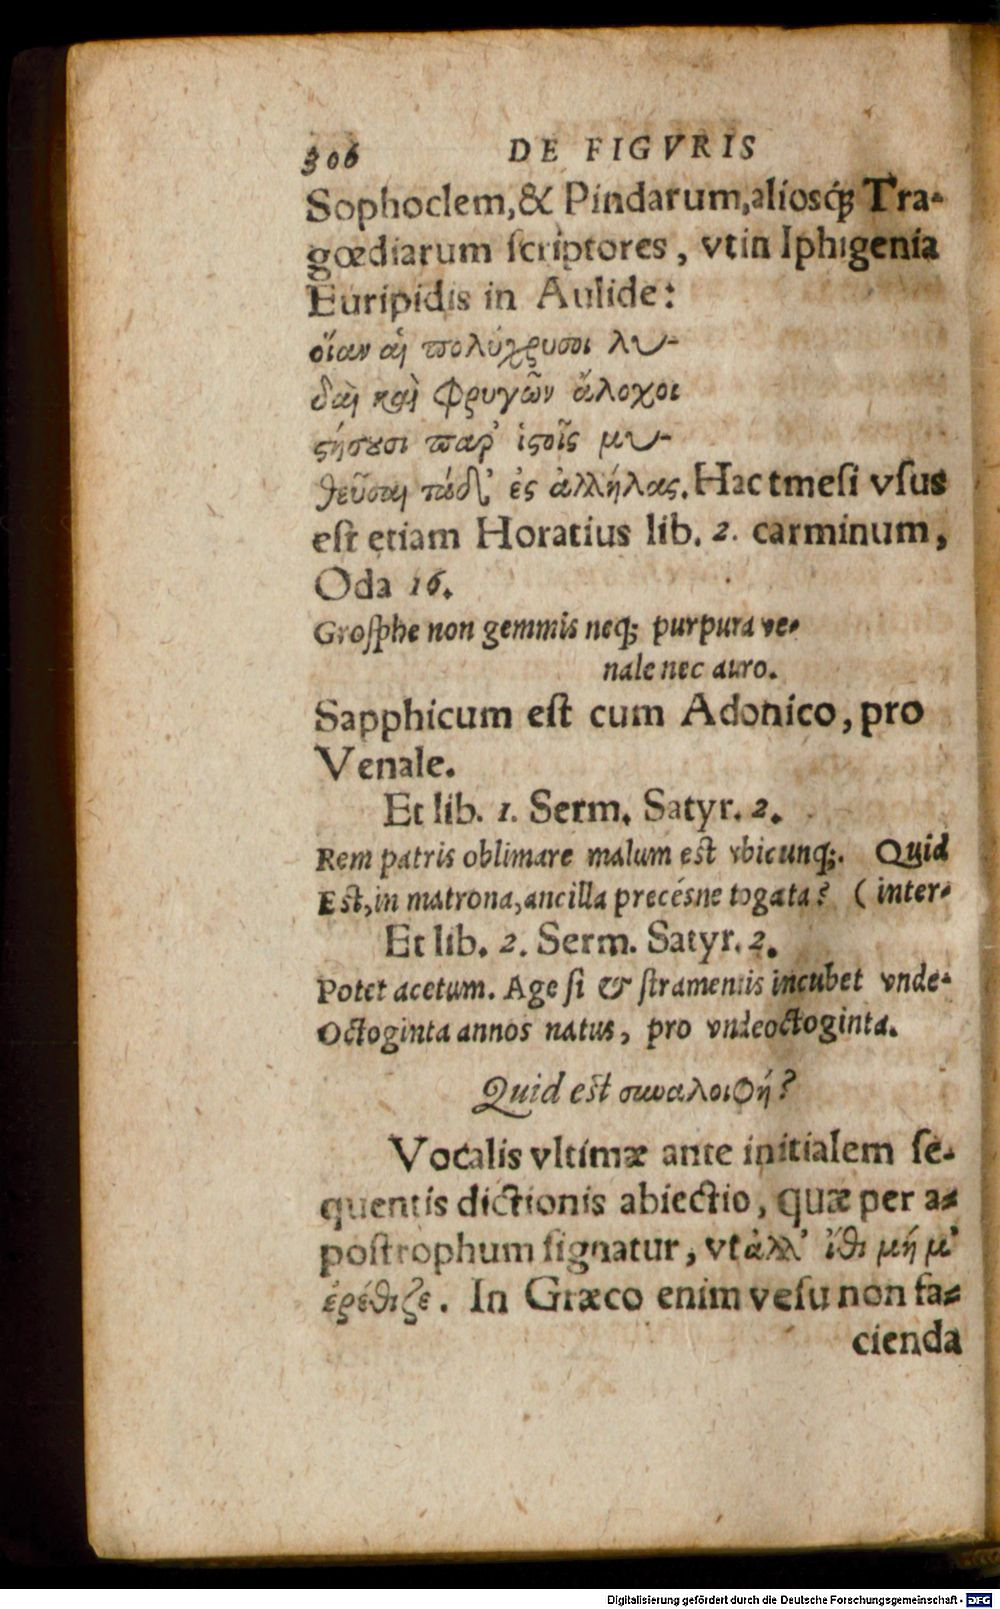 306 DE FIGVRIS
Sophoclem, & Pindarum, aliosq́ꝫ Tra-
gœdiarum ſcriptores, vt in Iphigenia
Euripidis in Aulide:
οἵαν αἱ πολύχρυσοι λυ-
δαὶ καὶ Φρυγῶν ἄλοχοι
ϛήσουσι παρ' ἱϛοῖς μυ-
θεῦσαι τάδ' ἐς ἀλλήλας. Hac tmeſi vſus
eſt etiam Horatius lib. 2. carminum,
Oda 16.
Groſphe non gemmis neq; purpura ve-
nale nec auro.
Sapphicum eſt cum Adonico, pro
Venale.
Et lib. 1. Serm. Satyr. 2.
Rem patris oblimare malum eſt vbicunq;. Quid
Eſt, in matrona, ancilla precésne togata? (inter-
Et lib. 2. Serm. Satyr. 2.
Potet acetum. Age ſi & ſtramentis incubet vnde-
Octoginta annos natus, pro vndeoctoginta.
Quid eſt συναλοιφή?
Vocalis vltimæ ante initialem ſe-
quentis dictionis abiectio, quæ per a-
poſtrophum ſignatur, vt ἀλλ' ἴθι μή μ'
ἐρέθιζε. In Græco enim veſu non fa-
cienda
Digitalisierung gefördert durch die Deutsche Forschungsgemeinschaft - DFG